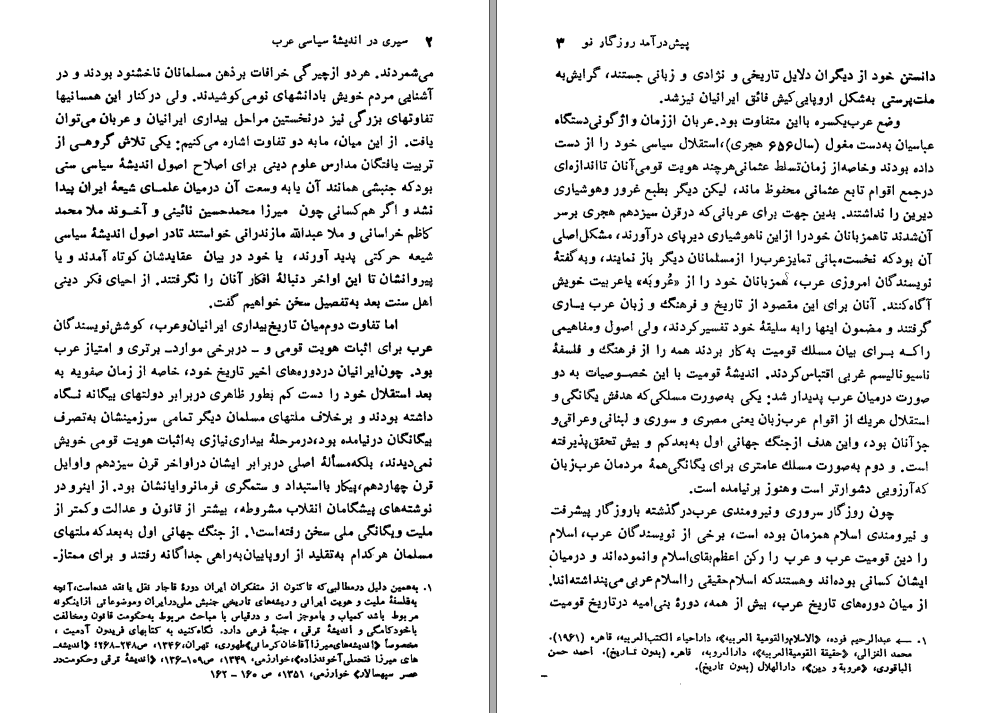 ۲ سیری در اندیشهٔ سیاسی عرب
می‌شمردند. هردو ازچیرگی خرافات برذهن مسلمانان ناخشنود بودند و در
آشنایی مردم خویش بادانشهای نومی‌کوشیدند. ولی درکنار این همسانیها
تفاوتهای بزرگی نیز درنخستین مراحل بیداری ایرانیان و عربان می‌توان
یافت. از این میان، مابه دو تفاوت اشاره می‌کنیم: یکی تلاش گروهی از
تربیت یافتگان مدارس علوم دینی برای اصلاح اصول اندیشهٔ سیاسی سنی
بودکه جنبشی همانند آن یابه وسعت آن درمیان علمای شیعهٔ ایران پیدا
نشد و اگر هم‌کسانی چون میرزا محمدحسین نائینی و آخوند ملا محمد
کاظم خراسانی و ملا عبدالله مازندرانی خواستند تادر اصول اندیشهٔ سیاسی
شیعه حرکتی پدید آورند، یا خود در بیان عقایدشان کوتاه آمدند و یا
پیروانشان تا این اواخر دنبالهٔ افکار آنان را نگرفتند. از احیای فکر دینی
اهل سنت بعد به‌تفصیل سخن خواهیم گفت.
اما تفاوت دوم‌میان تاریخ‌بیداری ایرانیان‌وعرب، کوشش‌نویسندگان
عرب برای اثبات هویت قومی و ــ دربرخی مواردـ برتری و امتیاز عرب
بود. چون‌ایرانیان دردوره‌های اخیر تاریخ خود، خاصه از زمان صفویه به
بعد استقلال خود را دست کم بطور ظاهری دربرابر دولتهای بیگانه نگاه
داشته بودند و برخلاف ملتهای مسلمان دیگر تمامی سرزمینشان به‌تصرف
بیگانگان درنیامده بود،درمرحلهٔ بیداری‌نیازی به‌اثبات هویت قومی خویش
نمی‌دیدند، بلکه‌مسألهٔ اصلی دربرابر ایشان دراواخر قرن سیزدهم واوایل
قرن چهاردهم،پیکار بااستبداد و ستمگری فرمانروایانشان بود. از اینرو در
نوشته‌های پیشگامان انقلاب مشروطه، بیشتر از قانون و عدالت وکمتر از
ملیت ویگانگی ملی سخن رفته‌است۱. از جنگ جهانی اول به‌بعدکه ملتهای
مسلمان هرکدام به‌تقلید از اروپاییان‌به‌راهی جداگانه رفتند و برای ممتازـ
۱. به‌همین دلیل درمطالبی‌که تاکنون از متفکران ایران دورهٔ قاجار نقل یا نقد شده‌است،آنچه
به‌فلسفهٔ ملیت و هویت ایرانی و ریشه‌های تاریخی جنبش ملی‌درایران وموضوعاتی ازاینگونه
مربوط باشد کمیاب و یاموجز است و درقیاس با مباحث مربوط به‌حکومت قانون ومخالفت
باخودکامگی و اندیشهٔ ترقی ، جنبهٔ فرعی دارد. نگاه‌کنید به کتابهای فریدون آدمیت ،
مخصوصاً «اندیشه‌های‌میرزا آقاخان‌کرمانی»طهوری، تهران،۱۳۴۶، ص۲۴۸-۲۶۸؛ «اندیشه‌ـ
های میرزا فتحعلی‌آخوندزاده»،خوارزمی، ۱۳۴۹، ص۱۰۹-۱۳۶، «اندیشهٔ ترقی وحکومت‌در
عصر سپهسالار» خوارزمی، ۱۳۵۱، ص ۱۶۰ – ۱۶۲
پیش‌درآمد روزگار نو ۳
دانستن خود از دیگران دلایل تاریخی و نژادی و زبانی جستند، گرایش‌به
ملت‌پرستی به‌شکل اروپایی‌کیش فائق ایرانیان نیزشد.
وضع عرب‌یکسره بااین متفاوت بود.عربان اززمان واژگونی‌دستگاه
عباسیان به‌دست مغول (سال۶۵۶ هجری)،استقلال سیاسی خود را از دست
داده بودند وخاصه‌از زمان‌تسلط عثمانی‌هرچند هویت قومی‌آنان تااندازه‌ای
درجمع اقوام تابع عثمانی محفوظ ماند، لیکن دیگر بطبع غرور وهوشیاری
دیرین را نداشتند. بدین جهت برای عربانی‌که درقرن سیزدهم هجری برسر
آن‌شدند تاهمزبانان خودرا ازاین ناهوشیاری دیرپای درآورند، مشکل‌اصلی
آن بودکه نخست‌مبانی تمایزعرب‌را ازمسلمانان دیگر باز نمایند، وبه‌گفتهٔ
نویسندگان امروزی عرب، همزبانان خود را از «عُروبَه» یاعربیت خویش
آگاه‌کنند. آنان برای این مقصود از تاریخ و فرهنگ و زبان عرب یاری
گرفتند و مضمون اینها رابه سلیقهٔ خود تفسیرکردند، ولی اصول ومفاهیمی
راکه برای بیان مسلک قومیت به‌کار بردند همه را از فرهنگ و فلسفهٔ
ناسیونالیسم غربی اقتباس‌کردند. اندیشهٔ قومیت با این خصوصیات به دو
صورت درمیان عرب پدیدار شد: یکی به‌صورت مسلکی‌که هدفش یگانگی و
استقلال هریک از اقوام عرب‌زبان یعنی مصری و سوری و لبنانی وعراقی‌و
جزآنان بود، واین هدف ازجنگ جهانی اول به‌بعدکم و بیش تحقق‌پذیرفته
است. و دوم به‌صورت مسلک عامتری برای یگانگی‌همهٔ مردمان عرب‌زبان
که‌آرزویی دشوارتر است وهنوز برنیامده است.
چون روزگار سروری و نیرومندی عرب‌درگذشته باروزگار پیشرفت
و نیرومندی اسلام همزمان بوده است، برخی از نویسندگان عرب، اسلام
را دین قومیت عرب و عرب را رکن اعظم‌بقای‌اسلام وانموده‌اند و درمیان
ایشان کسانی بوده‌اند وهستندکه اسلام‌حقیقی رااسلام عربی می‌پنداشته‌اند۱
از میان دوره‌های تاریخ عرب، بیش از همه، دورهٔ بنی‌امیه درتاریخ قومیت
۱. ← عبدالرحیم فوده، «الاسلام‌والقومیة العربیه»، داراحیاء الکتب‌العربیه، قاهره (۱۹۶۱).
محمد الغزالی، «حقیقة القومیةالعربیه»، دارالعروبه، قاهره (بدون تاریخ). احمد حسن
الباقوری، «عروبة و دین»، دارالهلال (بدون تاریخ).